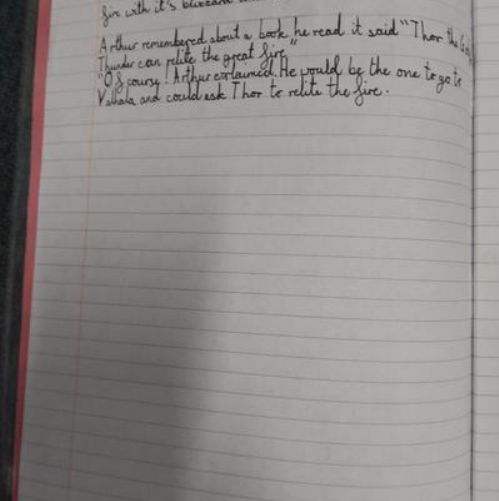 fire with it's blizzard
Arthur remembered about a book he read it said "Thor the
Thunder can relite the great fire"
"Of course! Arthur exclaimed. He would be the one to go to
Valhala and could ask Thor to relite the fire.